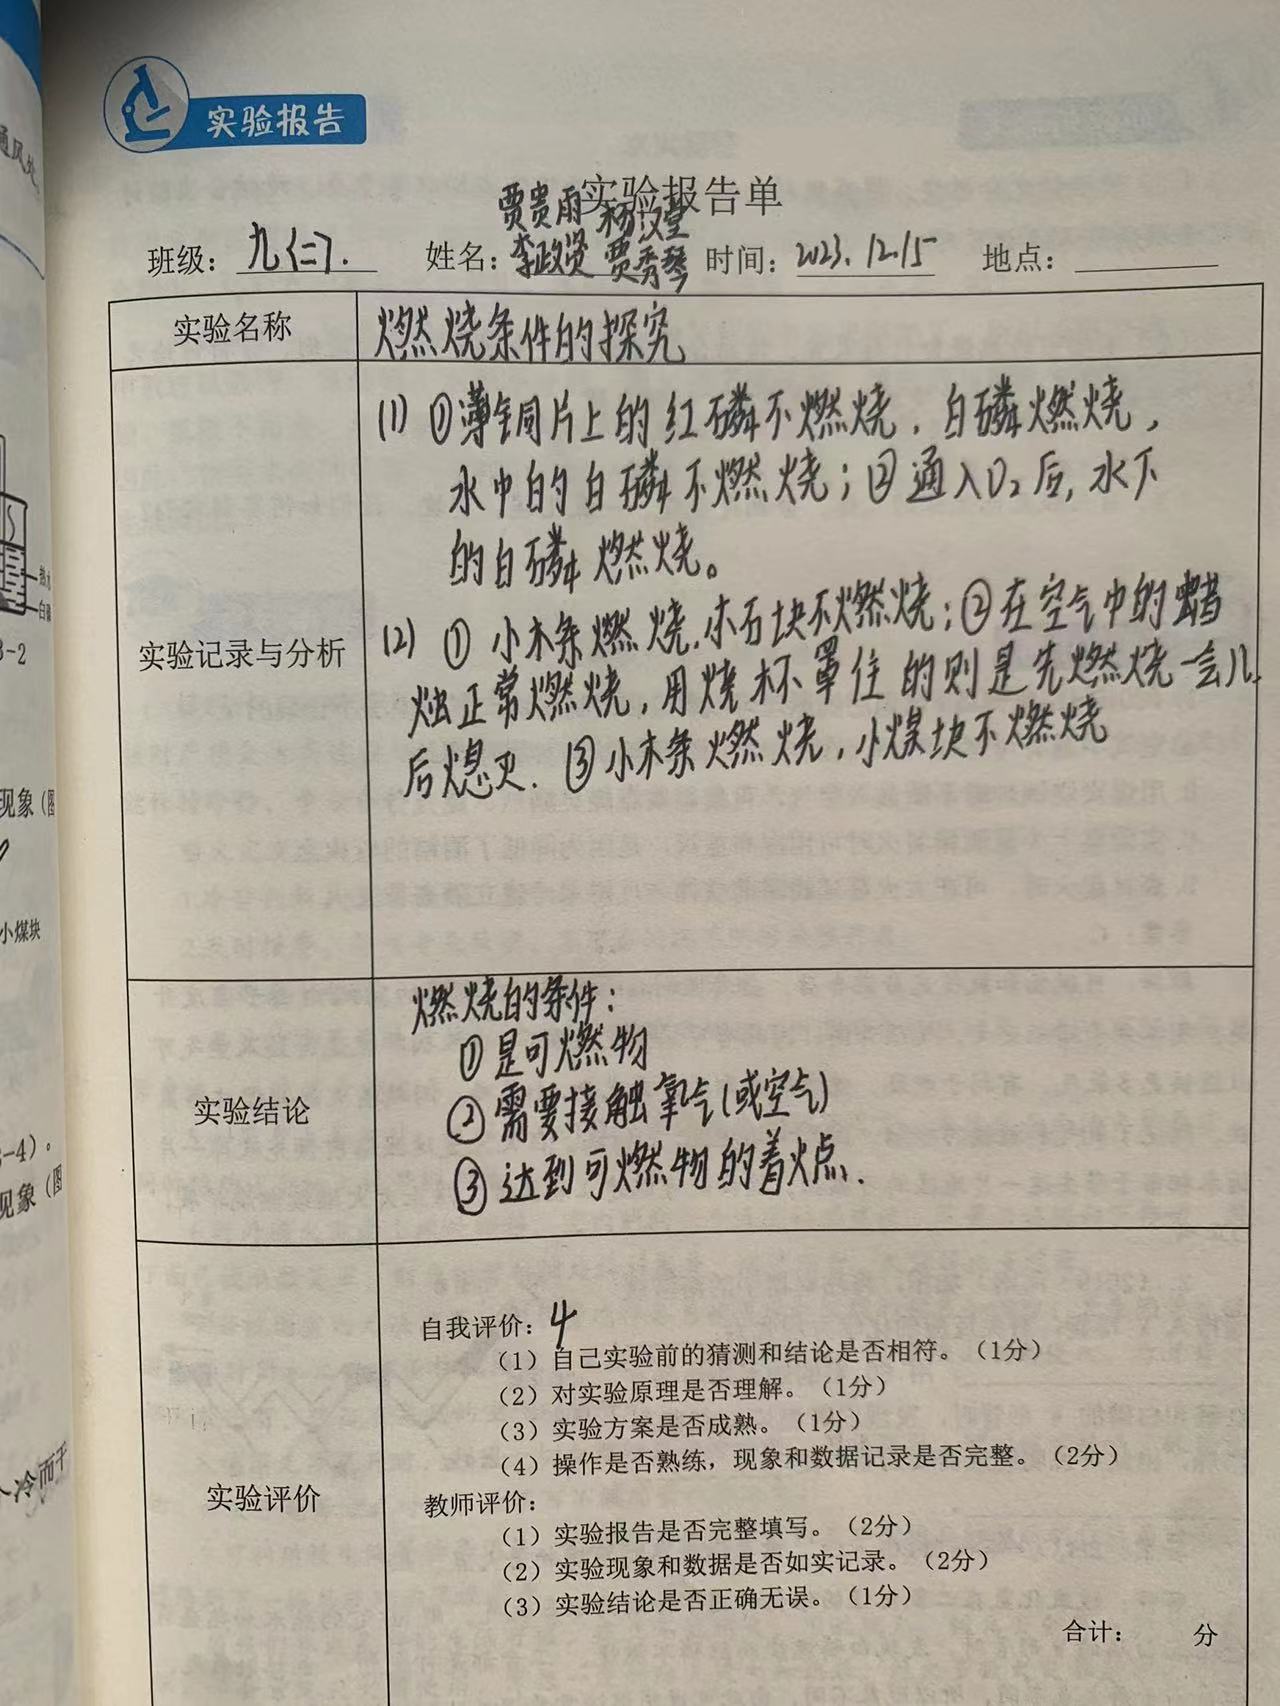 通风处
实验报告
实验报告单
贾贵雨 杨汉堂
班级：九〈二〉. 姓名：李政贤 贾秀琴 时间：2023.12.15 地点：
实验名称
燃烧条件的探究
(1) ①薄铜片上的红磷不燃烧，白磷燃烧，
水中的白磷不燃烧；②通入O₂后，水下
的白磷燃烧。
实验记录与分析
(2) ① 小木条燃烧，小石块不燃烧；②在空气中的蜡
烛正常燃烧，用烧杯罩住的则是先燃烧一会儿
后熄灭. ③小木条燃烧，小煤块不燃烧
实验结论
燃烧的条件：
①是可燃物
②需要接触氧气(或空气)
③达到可燃物的着火点.
实验评价
自我评价：4
（1）自己实验前的猜测和结论是否相符。（1分）
（2）对实验原理是否理解。（1分）
（3）实验方案是否成熟。（1分）
（4）操作是否熟练，现象和数据记录是否完整。（2分）
教师评价：
（1）实验报告是否完整填写。（2分）
（2）实验现象和数据是否如实记录。（2分）
（3）实验结论是否正确无误。（1分）
合计： 分
热水
白磷
3-2
现象（图
小煤块
3-4）。
现象（图
冷而干